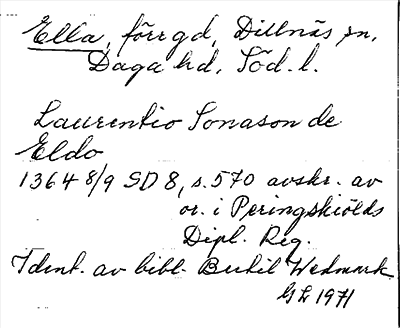 Ella, förr gd, Dillnäs sn,
Daga hd, Söd. l.
Laurentio Sonason de
Eldo
1364 8/9 SD 8, s. 570 avskr. av
or. i Peringskiölds
Dipl. Reg.
Ident. av bibl. Bertil Wedmark
GL 1971